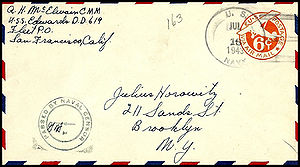 A. H. McElwain C.M.M.
U.S.S. Edwards D.D. 619
Fleet P.O.
San Francisco, Calif
163
U. S.
JUL
16
194
NAVY
AIR MAIL
6¢
PASSED BY NAVAL CENSOR
Julius Horowitz
211 Sands St.
Brooklyn
N.Y.